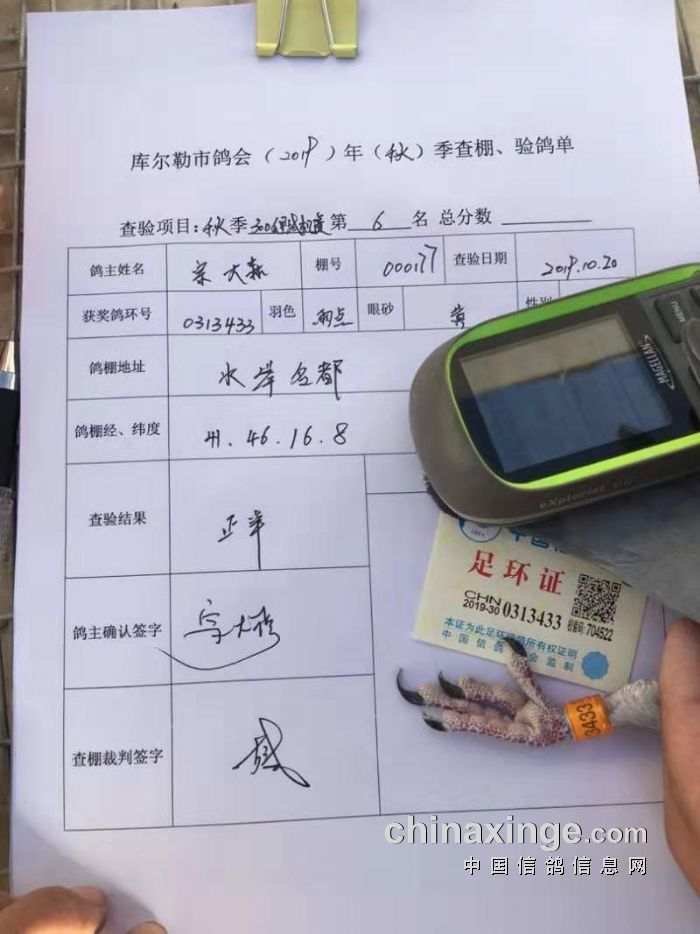 库尔勒市鸽会（2019）年（秋）季查棚、验鸽单
查验项目：秋季300公里 第 6 名 总分数
鸽主姓名 宋大森 棚号 000177 查验日期 2019.10.20
获奖鸽环号 0313433 羽色 雨点 眼砂 黄 性别
鸽棚地址 水岸名都
鸽棚经、纬度 41.46.16.8
查验结果 正常
鸽主确认签字
查棚裁判签字
MENU
MAGELLAN
eXplorist
足环证
CHN
2019-30 0313433
校验码:704522
本证为此足环鸽所有权证明
中国信鸽协会监制
3433
chinaxinge.com
中国信鸽信息网